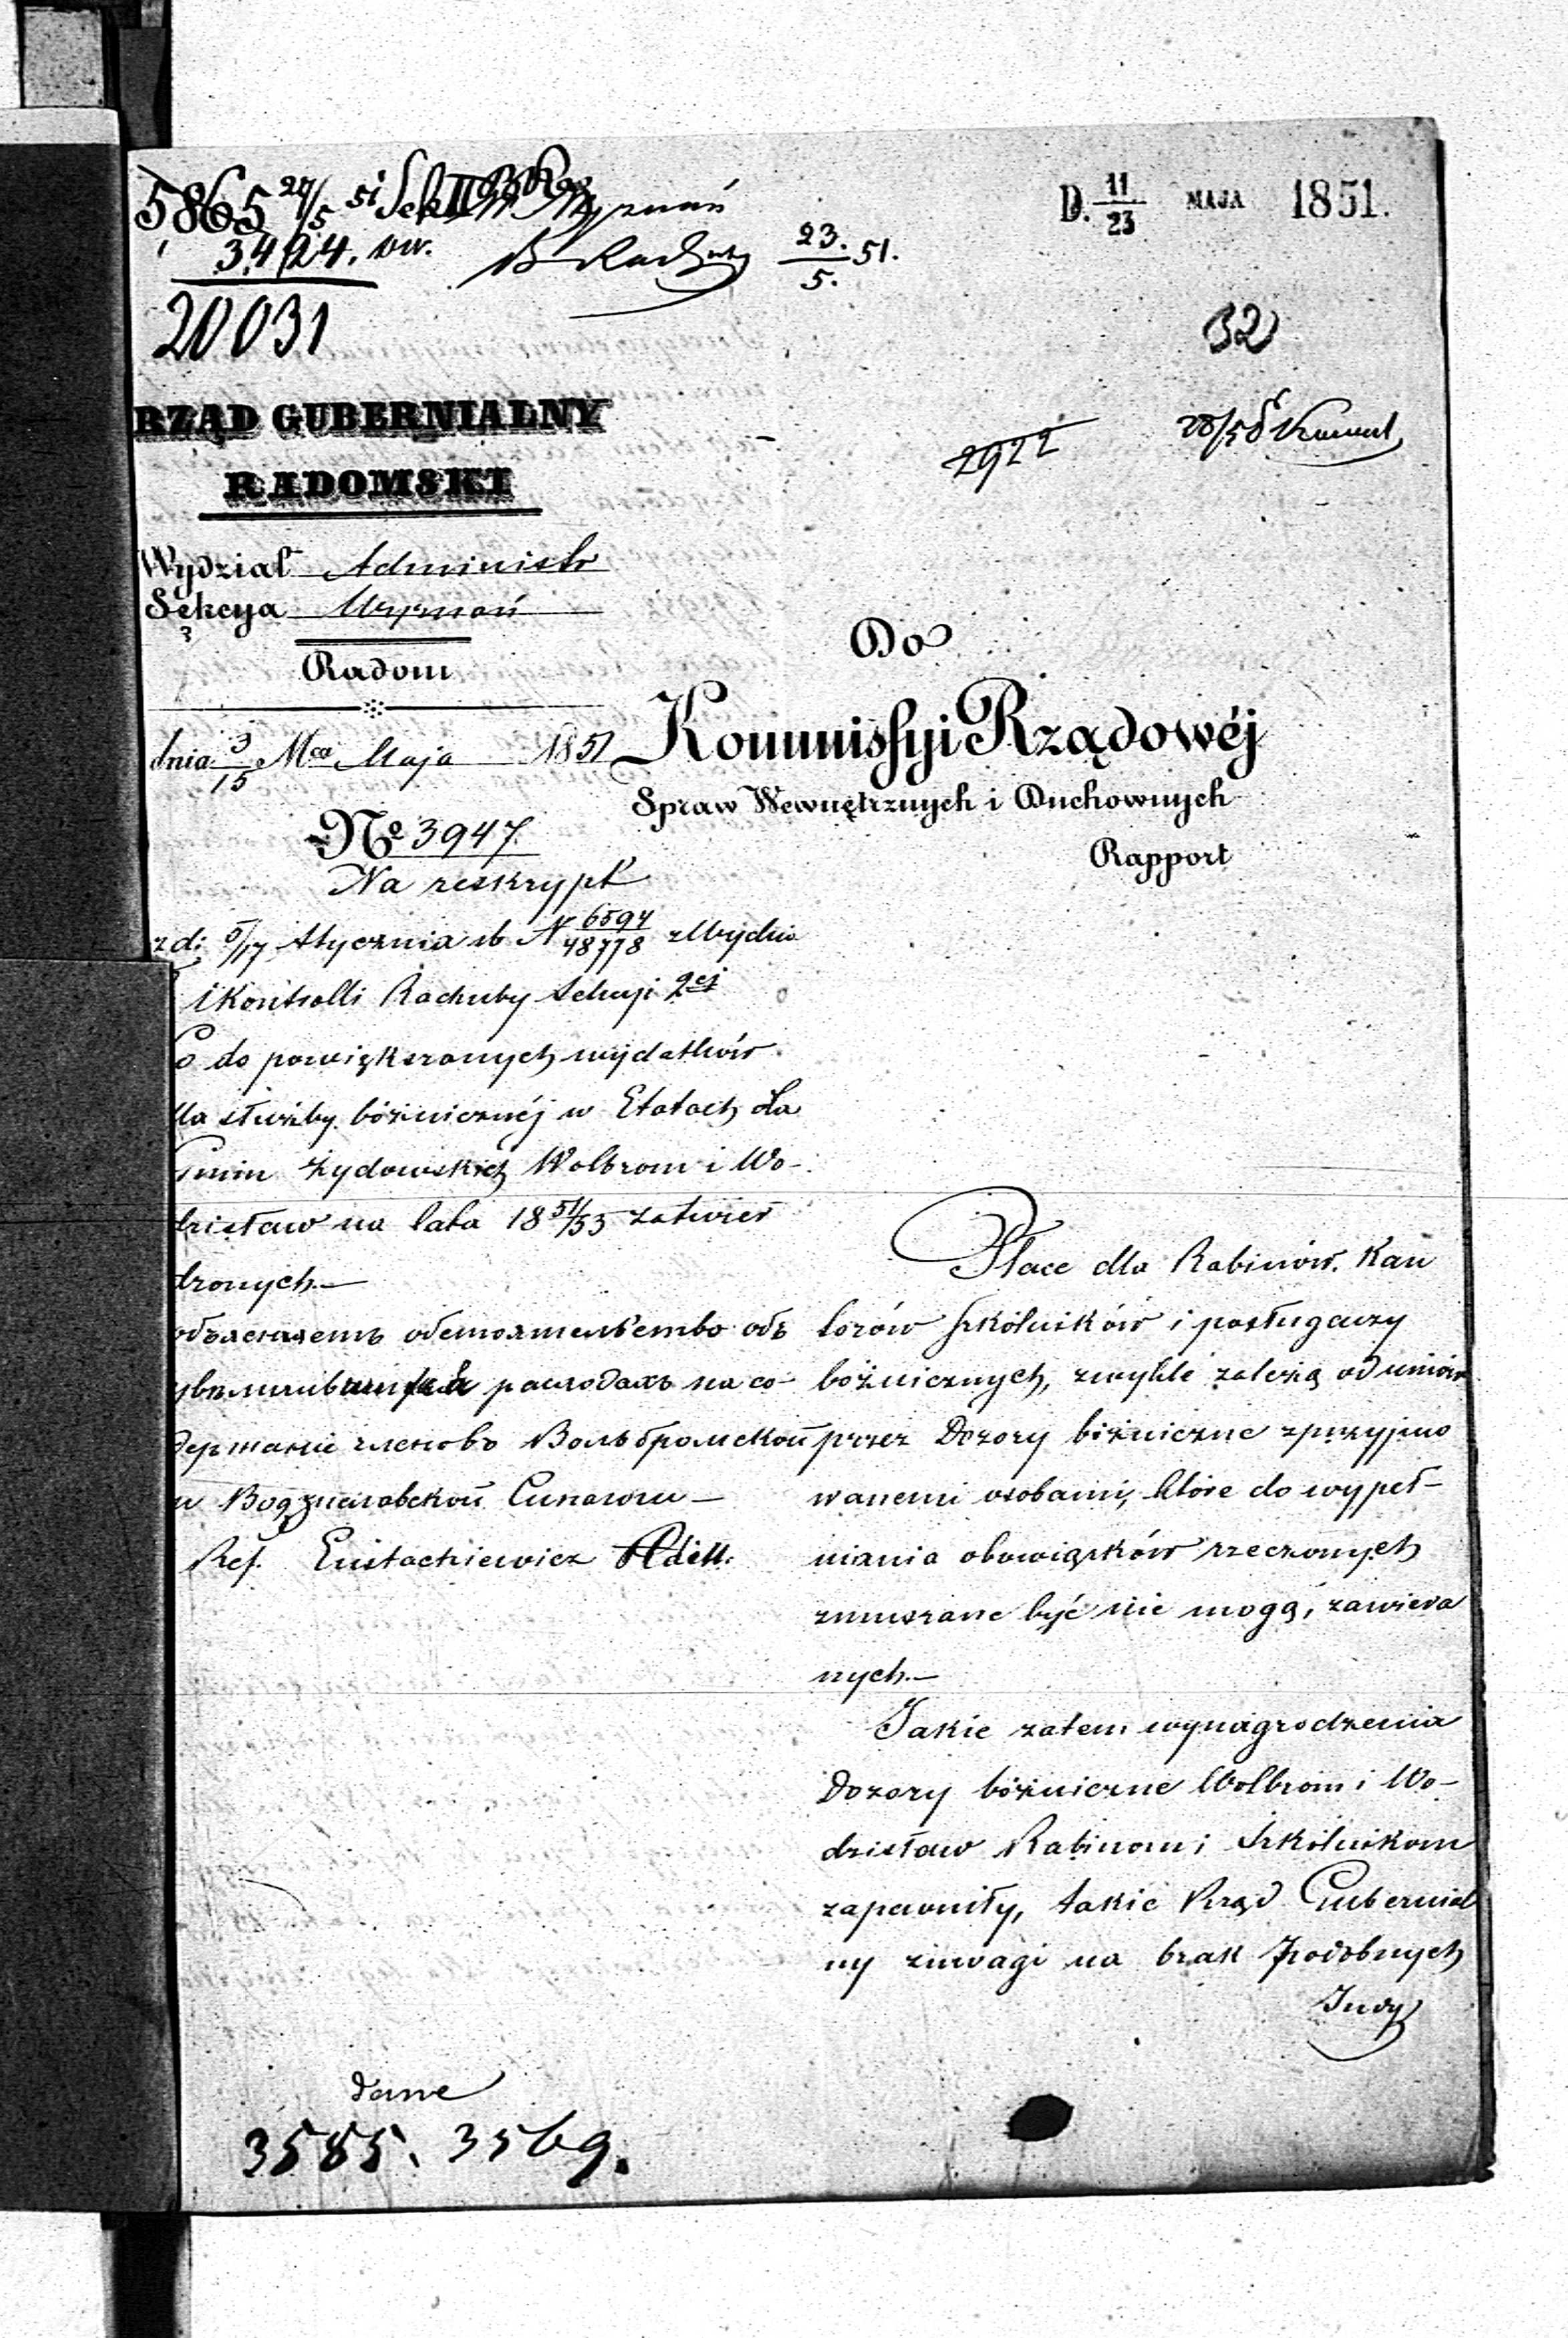 5865 24/5 51 Sek II
3424. ww.
20031
23./5. 51.
D. 11/23 MAJA 1851.
32
2922
RZĄD GUBERNIALNY
RADOMSKI
Wydział Administr
Sekcya Wyznań
Radom
dnia 3/15 Mca Maja 1851
No 3947.
Na reskrypt
z d: 5/17 Stycznia rb N 6594/48778 z Wydzia
i Kontrolli Rachuby Sekcyi 2ej
Co do powiększonych wydatków
dla służby bóżnicznéj w Etatach dla
Gmin Żydowskich Wolbrom i Wo-
dzisław na lata 1851/53 zatwier
dzonych.—
объясняетъ обстоятельство объ
расходахъ на со-
держание членовъ Вольбромской
и Водзиславской Синагоги —
Ref. Eustachiewicz
Do
Kommissyi Rządowéj
Spraw Wewnętrznych i Duchownych
Rapport
Płace dla Rabinów. Kan
torów Szkólników i posługaczy
bóżnicznych, zwykle zależą od umów
przez Dozory bóżniczne z przyjmo
wanemi osobami, które do wypeł-
niania obowiązków rzeczonych
zmuszane być nie mogą, zawiera
nych.—
Jakie zatem wynagrodzenia
Dozory bóżniczne Wolbrom i Wo-
dzisław Rabinom i Szkólnikom
zapewniły, takie Rząd Gubernial
ny z uwagi na brak podobnych
Indy
dane
3585. 3569.